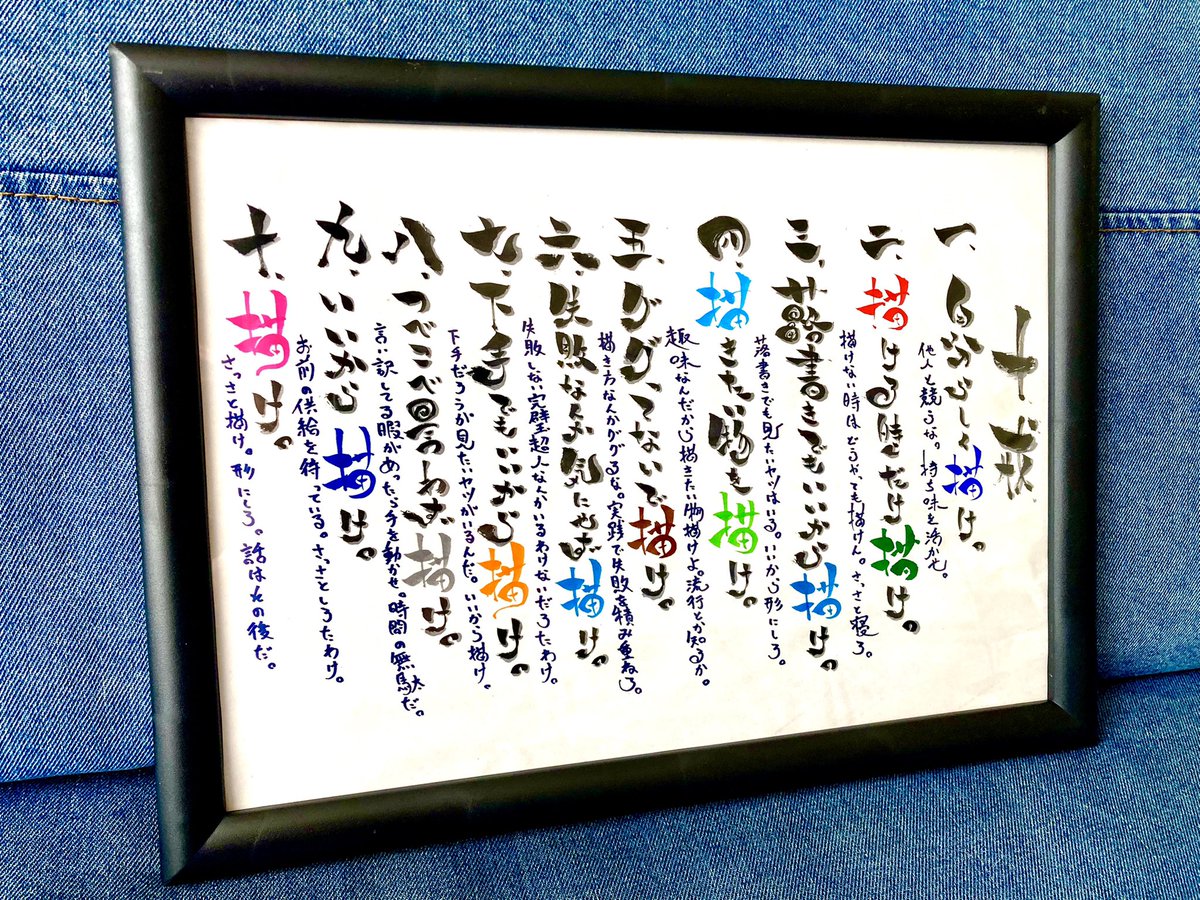 十戒
一、自分らしく描け。
他人と競うな。持ち味を活かせ。
二、描ける時だけ描け。
描けない時はどうやっても描けん。さっさと寝ろ。
三、落書きでもいいから描け。
落書きでも見たいヤツはいる。いいから形にしろ。
四、描きたい物を描け。
趣味なんだから描きたい物描けよ。流行とか知るか。
五、ググってないで描け。
描き方なんかググるな。実践で失敗を積み重ねろ。
六、失敗なんか気にせず描け。
失敗しない完璧超人なんかいるわけないだろたわけ。
七、下手でもいいから描け。
下手だろうが見たいヤツがいるんだ。いいから描け。
八、つべこべ言わず描け。
言い訳してる暇があったら手を動かせ。時間の無駄だ。
九、いいから描け。
お前の供給を待っている。さっさとしろたわけ。
十、描け。
さっさと描け。形にしろ。話はその後だ。